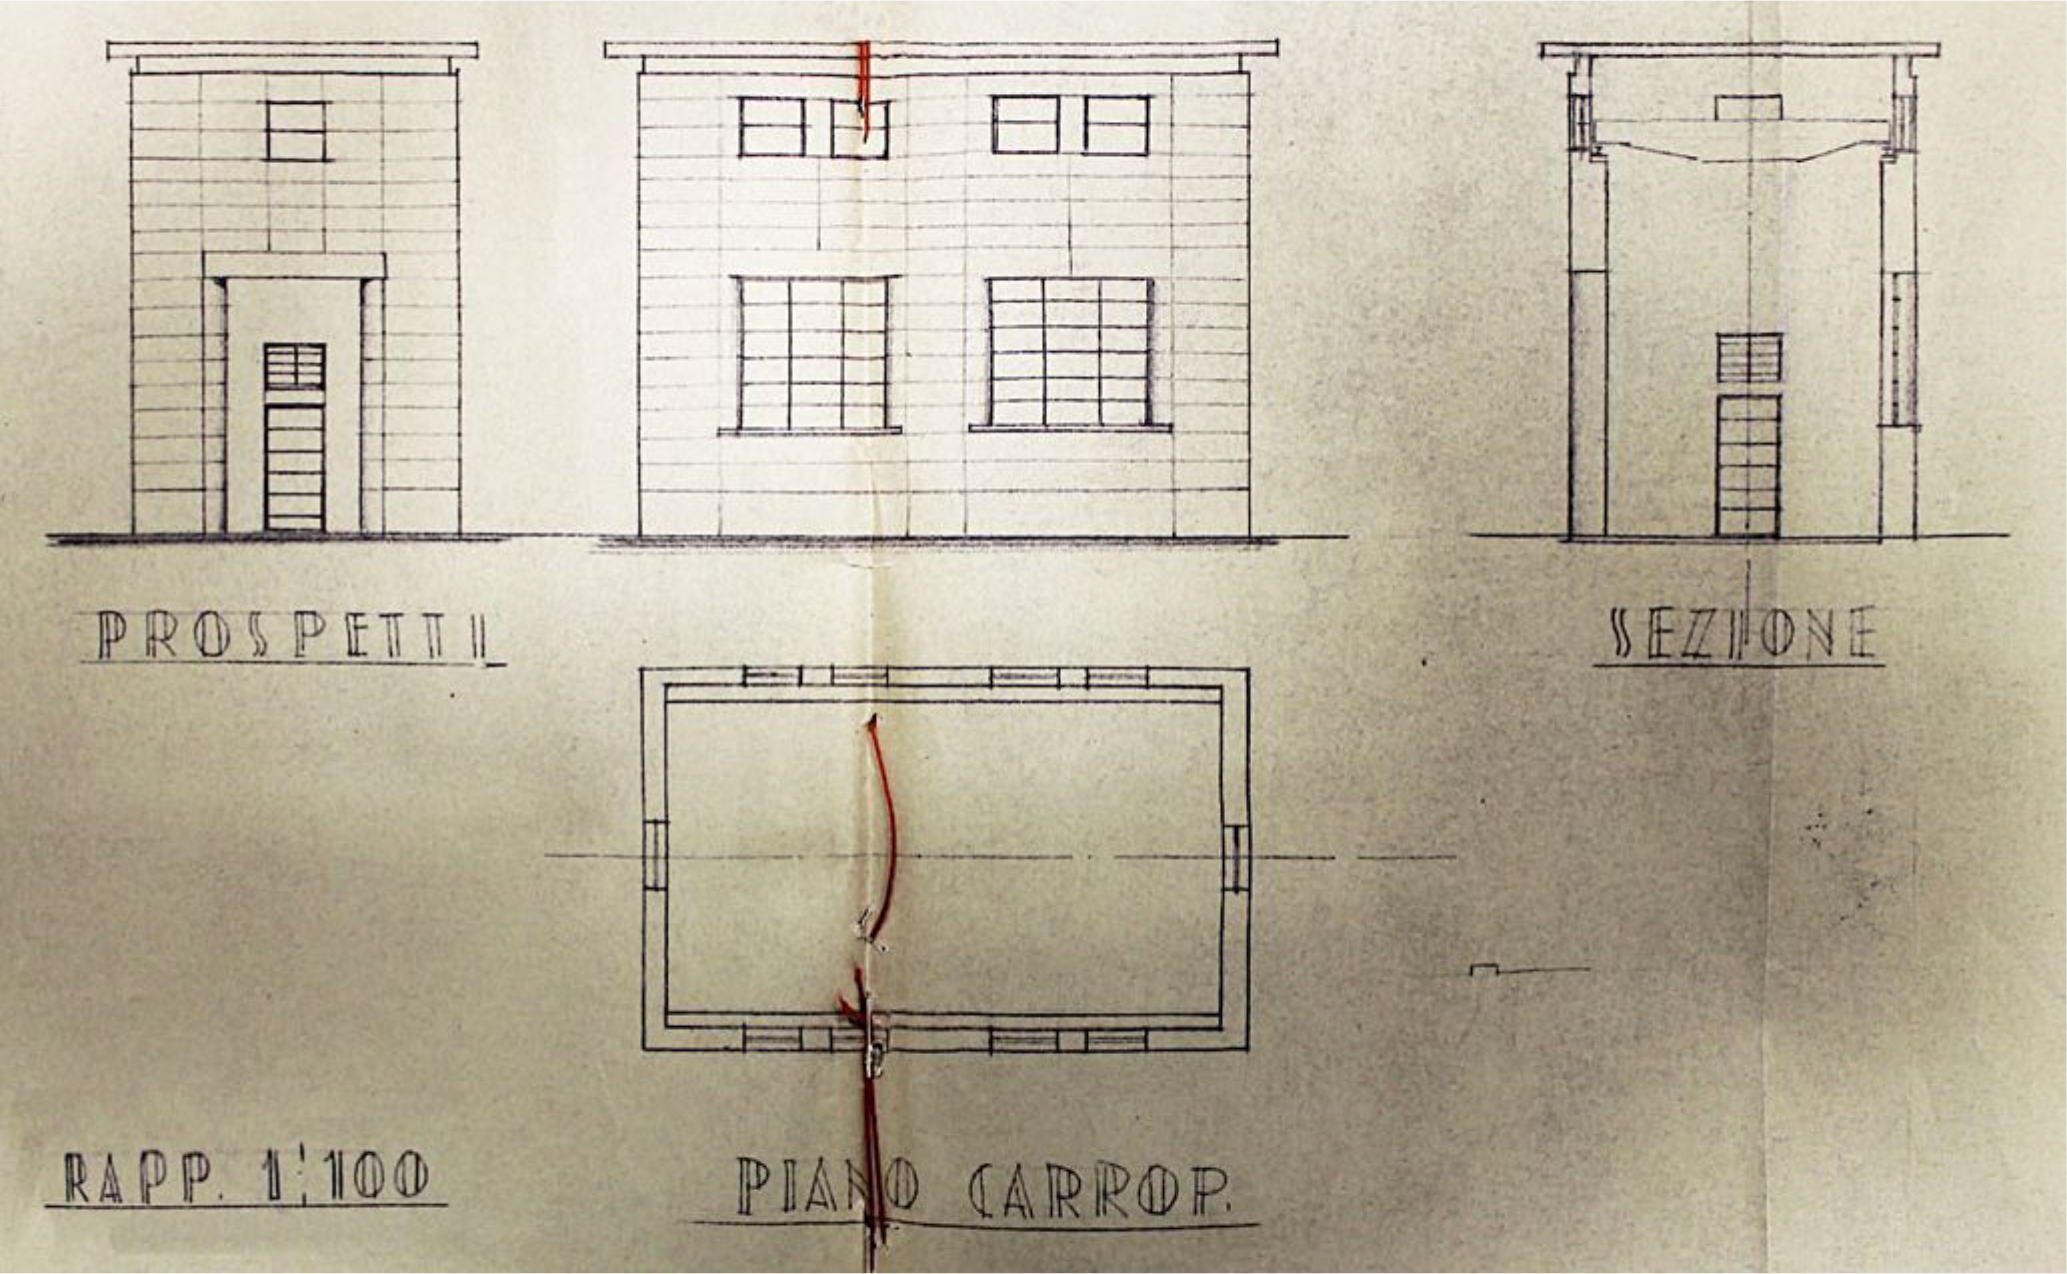 PROSPETTI
SEZIONE
RAPP. 1:100
PIANO CARROP.